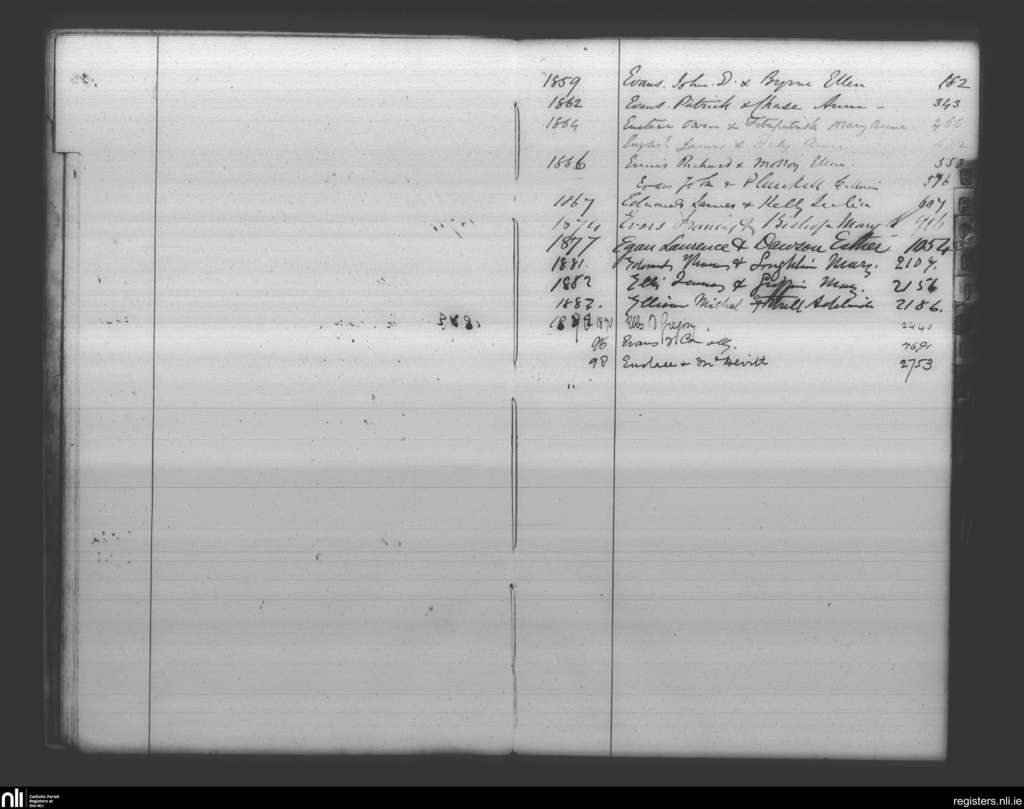 1859 Evans. John. D. & Byrne Ellen 182
1862 Evans. Patrick & Chase Anne - 343
1864 Eustace Owen & Fitzpatrick Mary Anne 466
English James &
1866 Ennis Richard & Molloy Ellen 558
Evans John & Plunkett 596
1867 Edwards James & Kelly Julia 607
1874 Evers Francis & Bishop Mary A
1877 Egan Laurence & Dawson Esther 1054
1881. Edwards Thomas & Loughlin Mary. 2109.
1882 Ellis James & Griffin Mary. 2156
1882. Ellison Michael & Adelaide 2186.
1883
1890 Ellis & Gregory. 2440
96 Evans & Connolly. 2691
98 Eustace & McDevitt 2753
nli Catholic Parish Registers at the NLI
registers.nli.ie